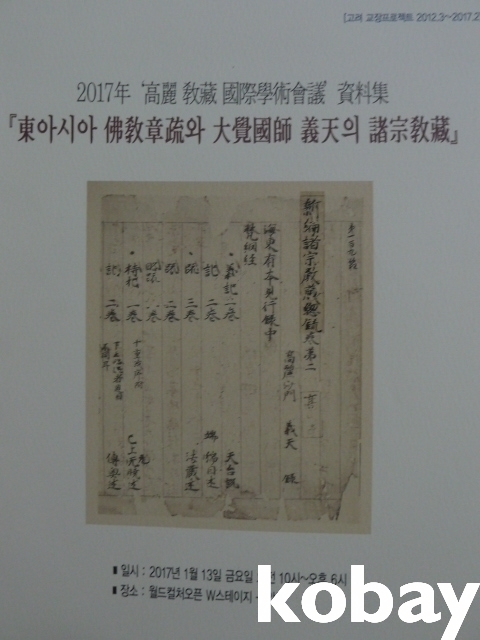 [고려 교장프로젝트 2012.3~2017.2
2017年 '高麗 敎藏 國際學術會議' 資料集
『東아시아 佛敎章疏와 大覺國師 義天의 諸宗敎藏』
新編諸宗教藏總錄卷第二
高麗沙門 義天 錄
海東有本見行錄中
梵網經
義記 二卷 天台說
記 二卷
疏 三卷 法藏述
疏 二卷
記 二卷 傳奧述
■ 일시 : 2017년 1월 13일 금요일 오전 10시~오후 6시
■ 장소 : 월드컬처오픈 W스테이지
kobay